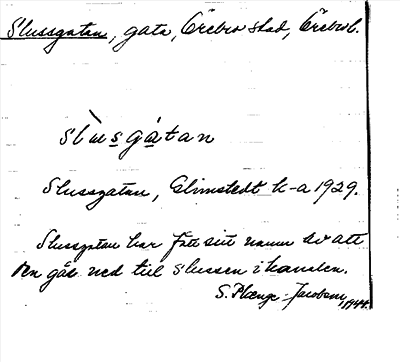 Slussgatan, gata, Örebro stad, Örebro l.
slùsgatan
Slussgatan, Elmstedt k-a 1929.
Slussgatan har fått sitt namn av att
den går ned till slussen i kanalen.
S. Plænge-Jacobson, 1944.